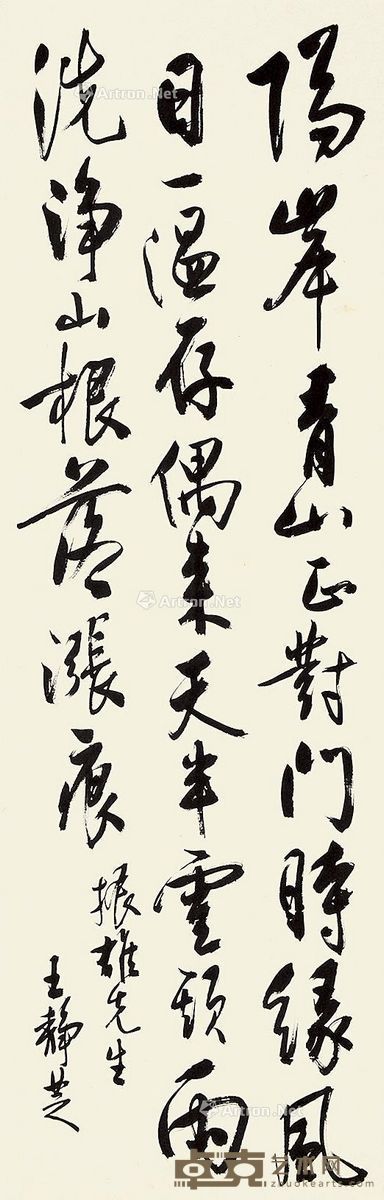 隔岸青山正對門時緣風
日一溫存偶來天半雲頭雨
洗淨山根落漲痕
振雄先生
王靜芝
Artron.Net
Artron.Net
Artron.Net
Artron.Net
卓克艺术网
zhuokearts.com